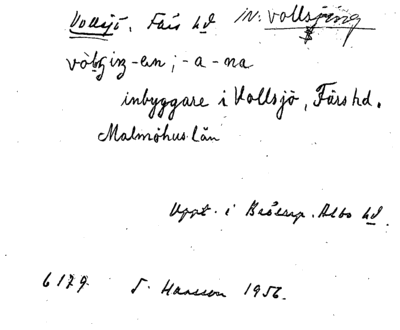 Vollsjö, Färs hd in: vollsjing
-en; -a -na
inbyggare i Vollsjö, Färs hd.
Malmöhus län
Uppt. i Albo hd.
6179 Hansson 1956.